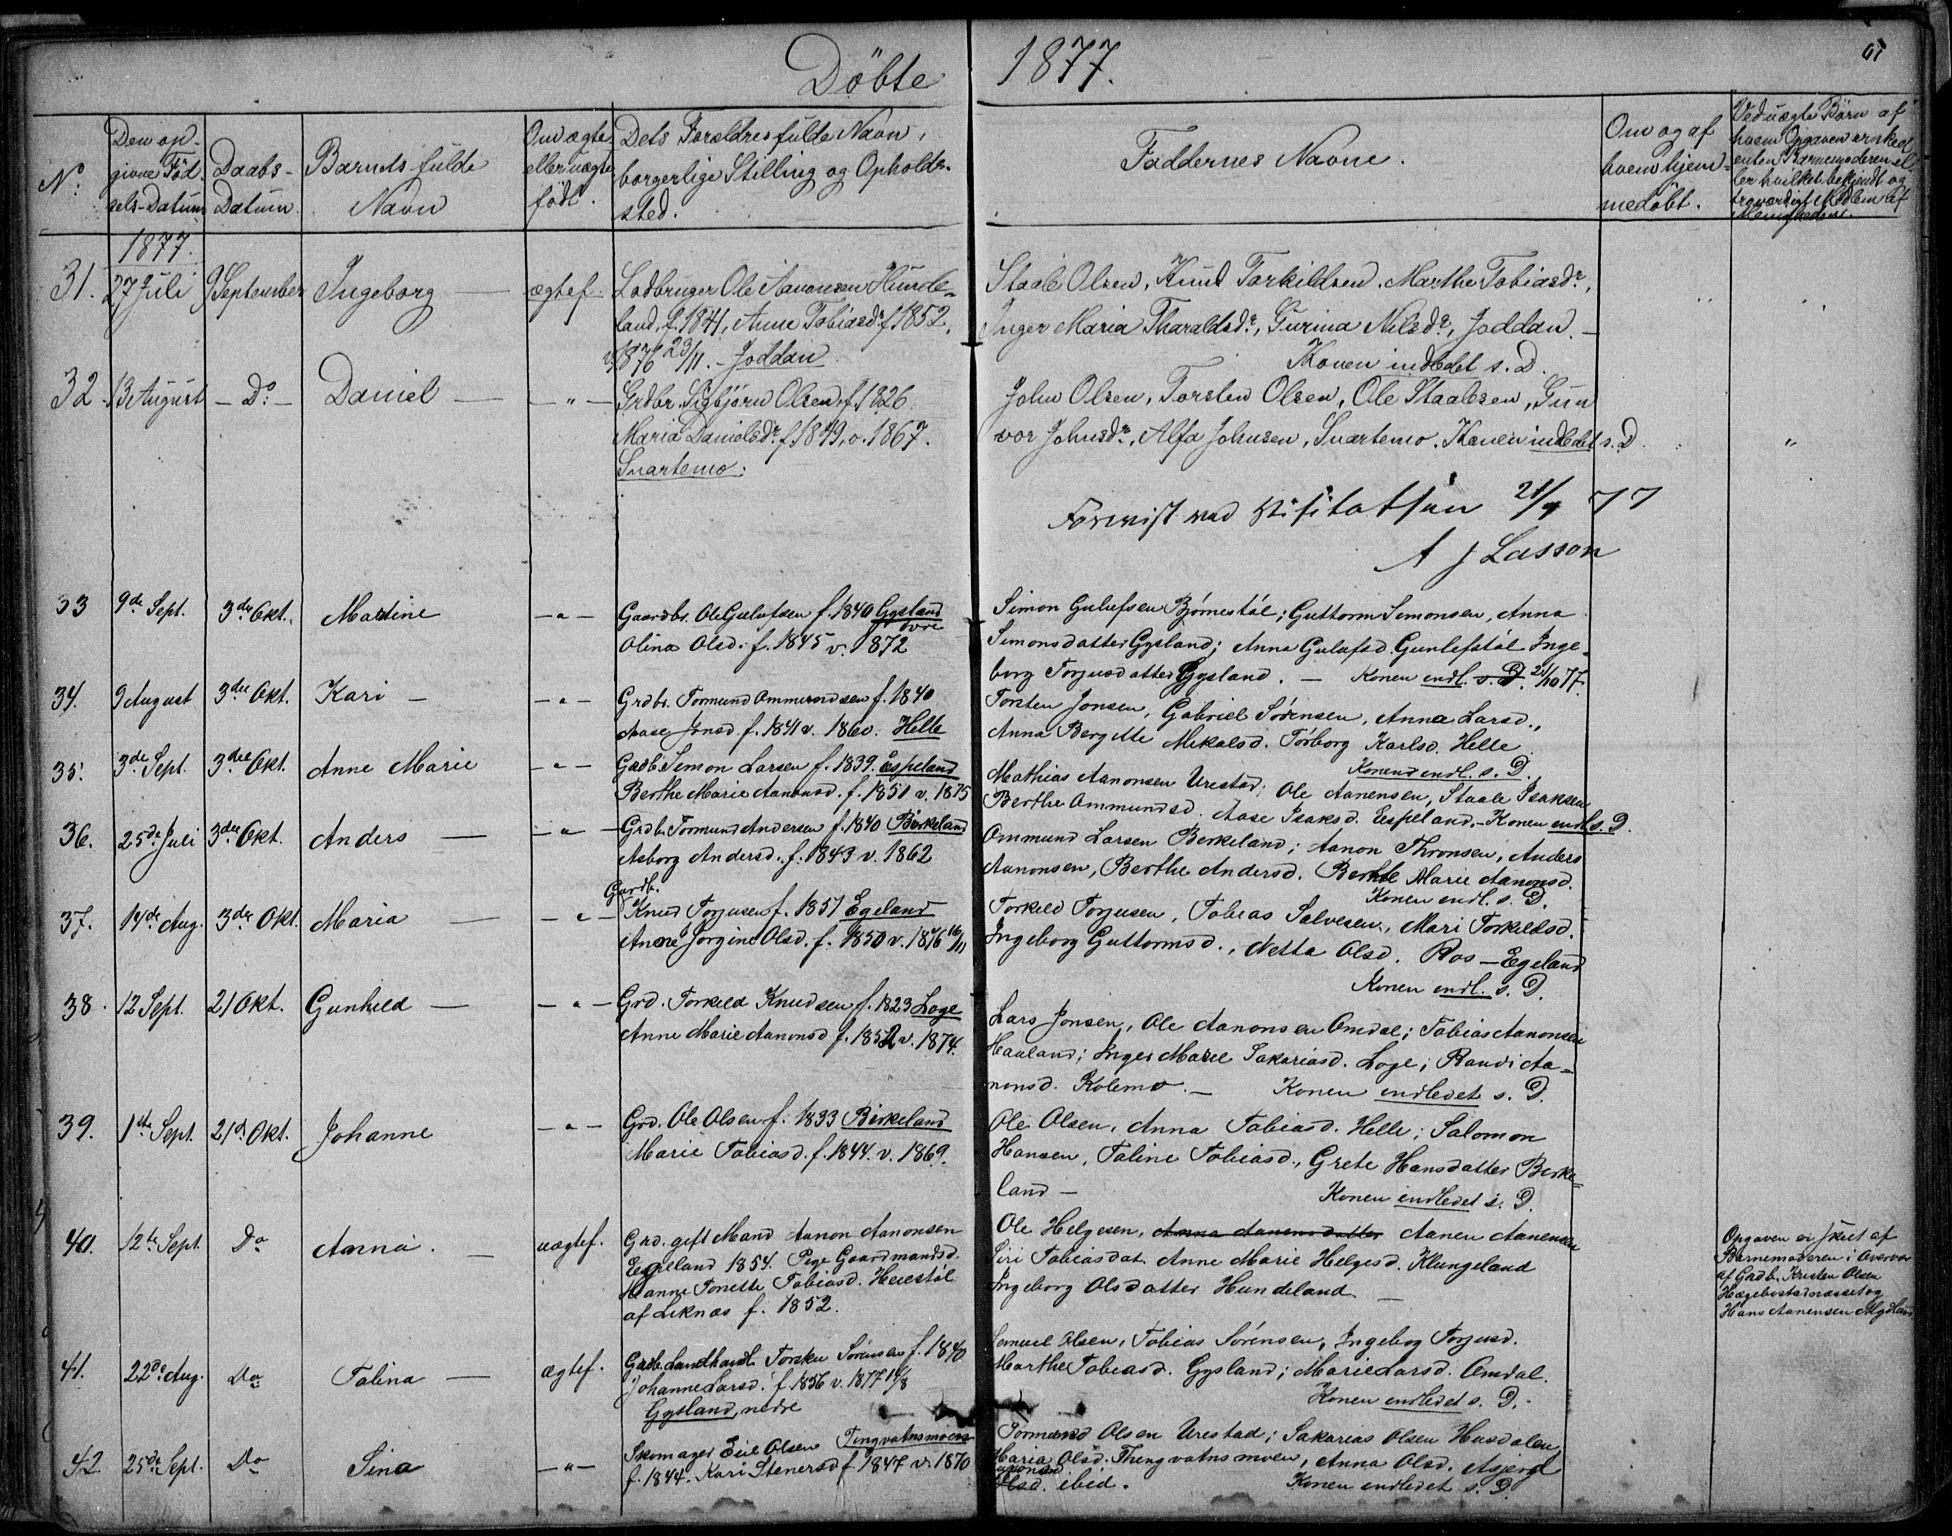 Döbte 1877.
67
N:
Den op-
givne Föd-
sels-Datum
Daabs-
Datum
Barnets fulde
Navn
Om ægte
eller uægte
födt.
Dets Forældres fulde Navn,
borgerlige Stilling og Opholds-
sted.
Faddernes Navne.
Om og af
hvem hjem-
medöbt.
Ved uægte Börn af
hvem Opgaven er skeet
enten Barnemoderen el-
ler hvilket bekjendt og
troværdigt Medlem af
Menigheden.
1877.
31. 27 Juli 9 September Ingeborg — ægtef.
Lodbruger Ole Aanonsen Hunde-
land, f. 1841, Anne Tobiasdr f 1852,
v. 1876 23/11. - Joddan
Staale Olsen, Knud Torkildsen. Marthe Tobiasdr,
Inger Maria Tharaldsdr, Gurina Nilsdr, Joddan. —
Konen indledet s. D.
32. 13 August — Do — Daniel — — " —
Grdbr. Sigbjörn Olsen, f. 1826.
Maria Danielsdr. f. 1849, v. 1867.
Svartemo:
John Olsen, Torsten Olsen, Ole Staalesen, Gun
vor Johnsdr, Alfa Johnsen, Svartemo. Konen indledet s. D.
"
Forevist ved Visitatsen 21/9 77
A J Lasson
33 9de Sept. 3die Okt. Martine — " —
Gaardbr. Ole Gulufsen f. 1840 Gysland
övre
Olina Olsd. f. 1845 v. 1872
Simon Gulufsen Bjørnestöl; Guttorm Simonsen, Anna
Simonsdatter Gysland; Anna Gulufsd. Gunlefstöl Inge-
borg Torjusdatter Gysland. — Konen endl. s. D. 21/10 77.
34. 9 August 3die Okt. Kari — — " —
Grdbr. Tormund Ommundsen f. 1840
Aase Jonsd f. 1841 v. 1860. Helle
Torsten Jonsen, Gabriel Sörensen, Anna Larsd.,
Anna Bergitte Mikalsd. Törborg Karlsd. Helle
Konen endl. s. D.
35. 3de Sept. 3die Okt. Anne Marie — " —
Gadb. Simon Larsen f. 1839. Espeland
Berthe Marie Aanonsd. f. 1851 v. 1875
Mathias Aanonsen Urestad; Ole Aanensen, Staale Isaksen
Berthe Ommundsd. Aase Isaksd. Eespeland. - Konen endl. s. D.
36. 25de Juli 3die Okt. Anders — — " —
Grdb. Tormund Andersen f. 1840 Birkeland
Asborg Andersd. f. 1843 v. 1862
Ommund Larsen Berkeland; Aanon Thronsen, Anders
Aanonsen, Berthe Andersd. Berthe Marie Aanonsd.
Konen endl. s. D.
37. 14de Aug. 3die Okt. Maria — — " —
Gardb.
Knud Torjusen f. 1851 Egeland
Anne Jorgine Olsd. f. 1850 v. 1876 16/11
Torkild Torjusen, Tobias Salvesen, Mari Torkeldsd.
Ingeborg Guttormsd., Netta Olsd. Ros — Egeland
Konen endl. s. D.
38. 12 Sept. 21 Okt. Gunheld — — " —
Grd. Torkeld Knudsen f. 1823 Loge
Anne Marie Aanonsd f. 1852 v. 1874.
Lars Jonsen, Ole Aanonsen Omdal; Tobias Aanonsen
Haaland; Inger Marie Sakariasd. Loge; Randi Aa-
nonsd. Kolemo. — Konen endledet s. D.
39. 1ste Sept. 21d Okt. Johanne — " —
Grd. Ole Olsen f. 1833 Birkeland
Marie Tobiasd. f. 1844. v. 1869.
Ole Olsen, Anna Tobiasd. Helle; Salomon
Hansen, Taline Tobiasd., Grete Hansdatter Berke-
land — Konen endledet s. D.
40. 12te Sept. Do Anna. — uægtef.
Grd. gift Mand Aanon Aanonsen
Eegeland 1854. Pige Gaardmandsd.
Hanne Tonette Tobiasd. Heiestöl
af Liknæs f. 1852.
Ole Helgesen, Anna Aanensdatter Aanen Aanensen
Siri Tobiasdat. Anne Marie Helgesd. Klungeland
Ingeborg Olsdatter Hundeland. —
Opgaven er skeet af
Barnemoderen i Overvær
af Grdb. Kristen Olsen
Hægebostadnæsset og
Hans Aanensen Mydland
41. 22de Aug. Do Talina — ægtef.
Gadb. Landhandl. Torsten Sörensen f. 1840
Johanne Larsd. f. 1856 v. 1877 14/8
Gysland, nedre
Samuel Olsen, Tobias Sörensen, Ingebog Torjusd.
Marthe Tobiasd. Gysland; Marie Larsd. Omdal.
Konen endledet s. D.
42 25de Sept. Do Sina — " —
Skomager Eeil Olsen Tingvatnsmoen
f. 1844. Kari Stenersd f. 1847 v. 1870
Tormund Olsen Urestad; Sakarias Olsen Husdalen
Maria Olsd. Thengvatnsmoen, Anna Olsd. Asjerd
Aanonsd
Olsd. ibid. Konen endledet s. D.